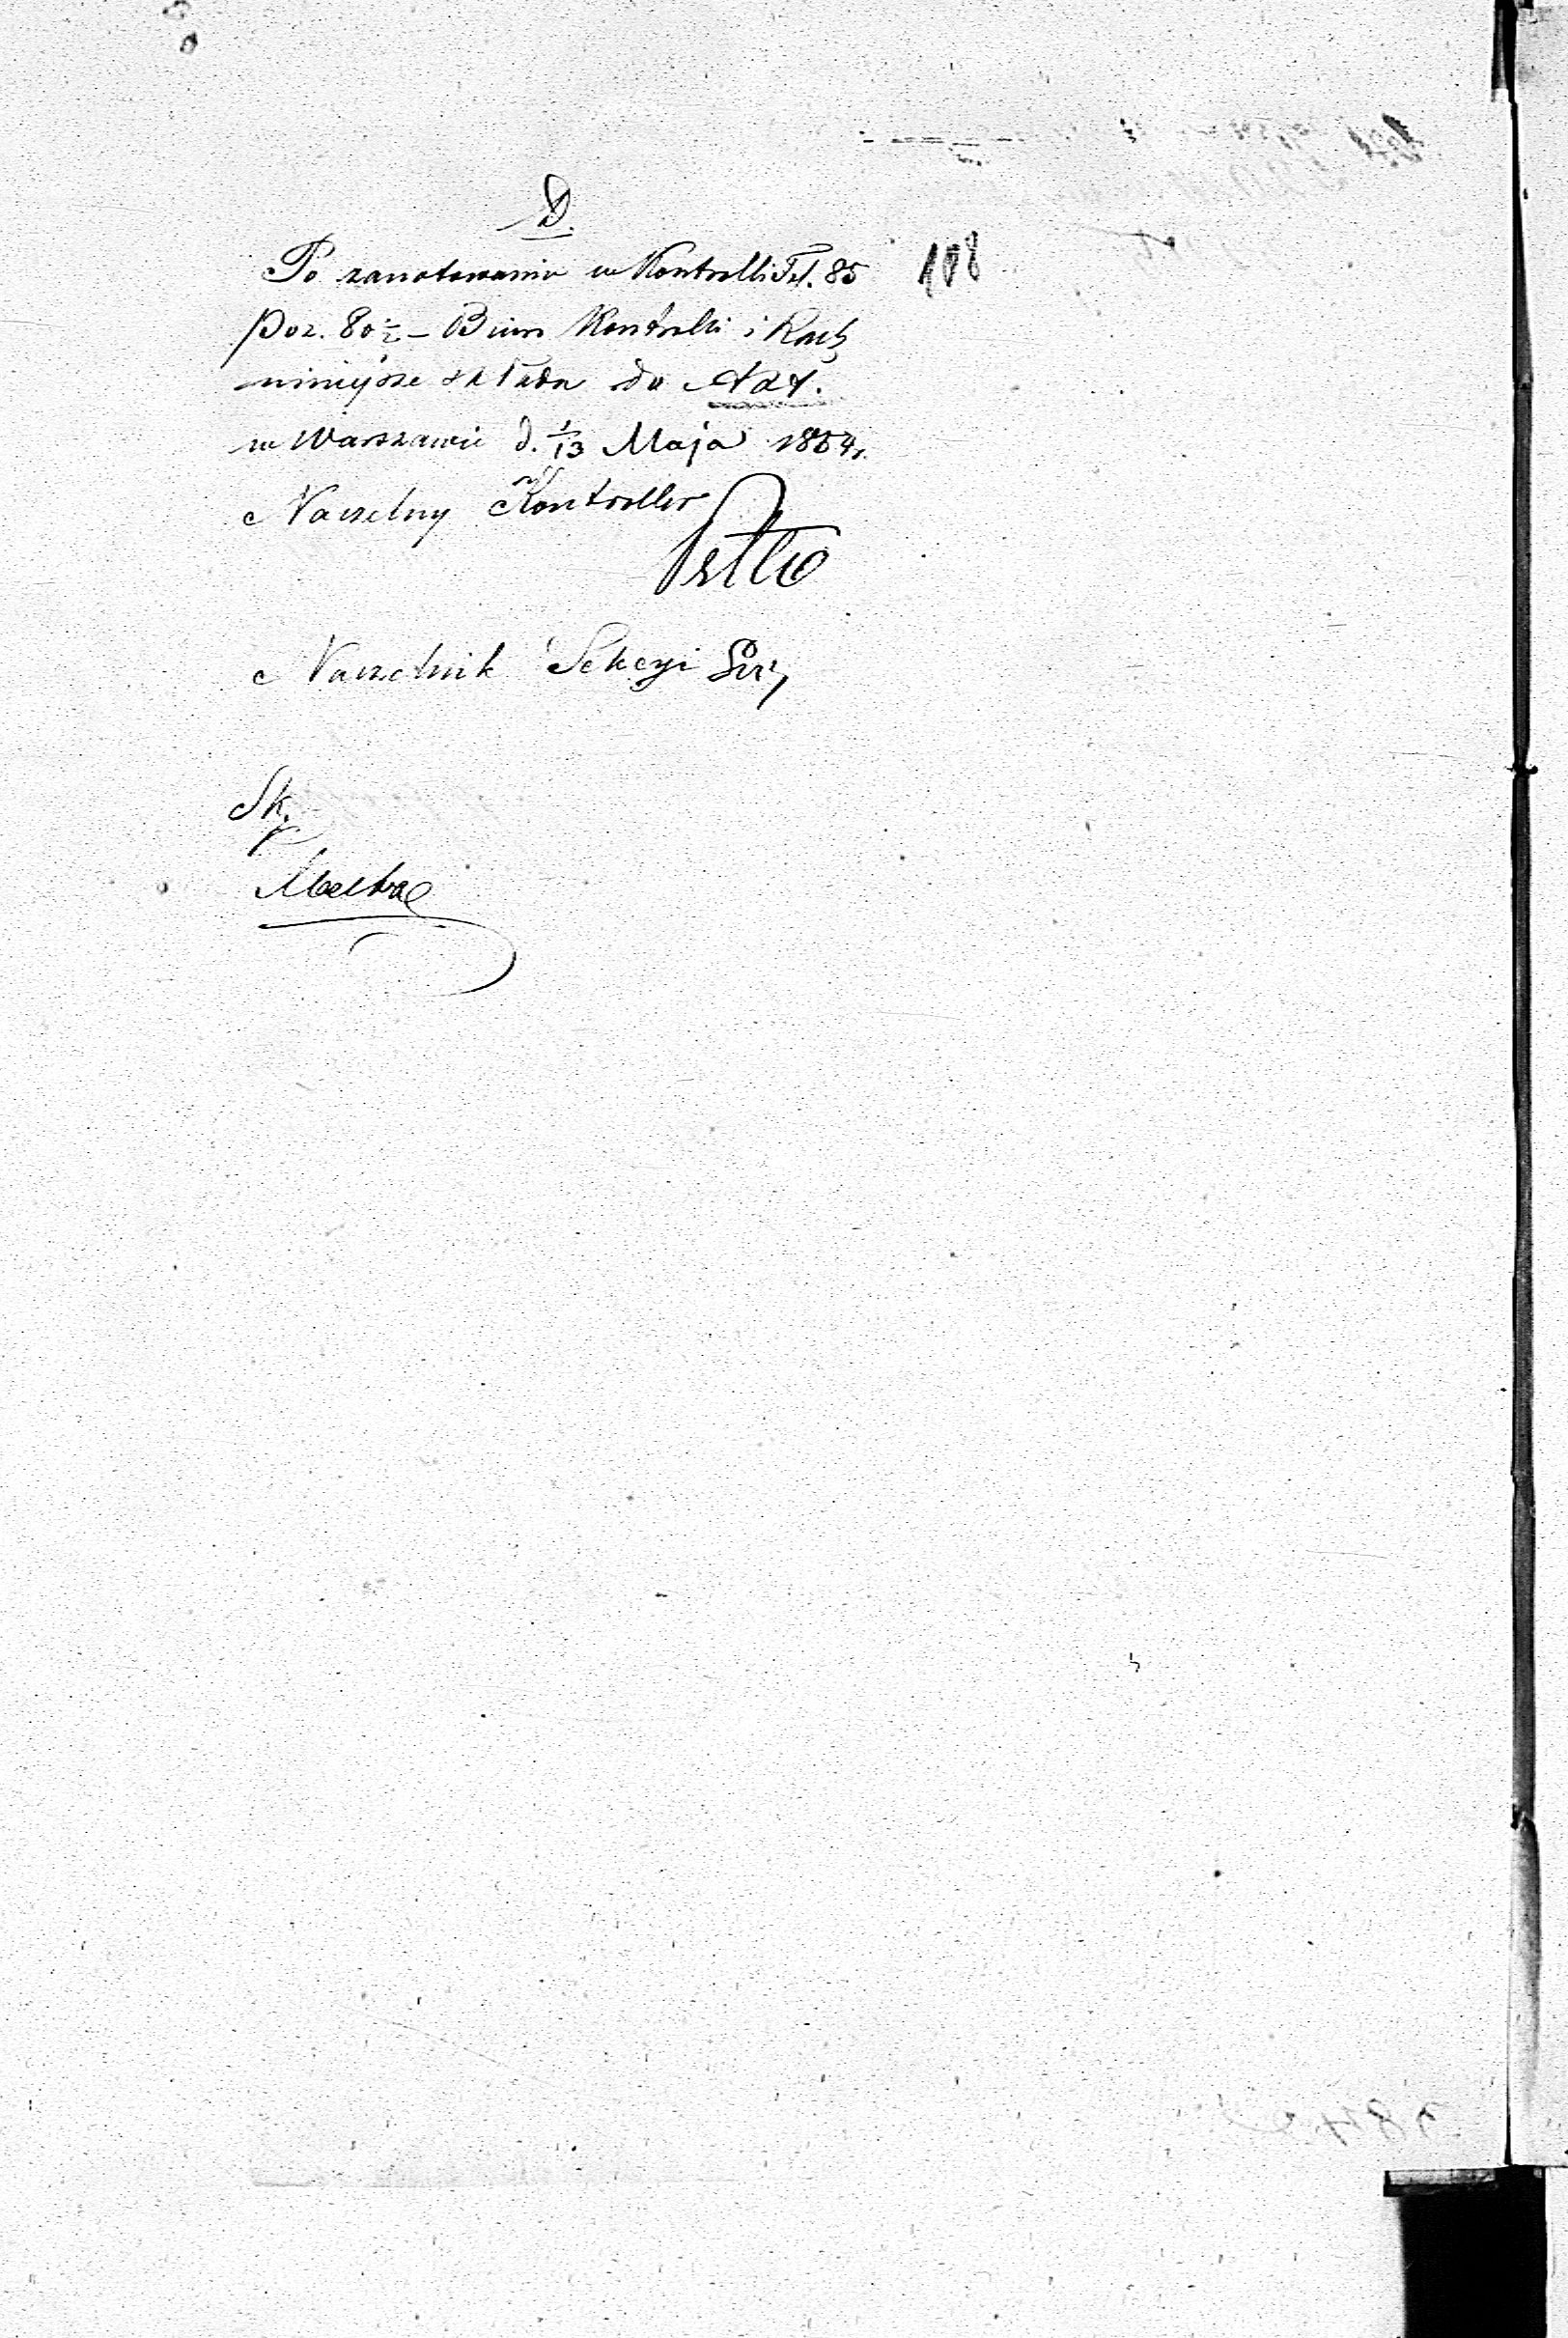 D.
Po zanotowaniu w Kontrolli Fol. 85 108
Poz. 80 1/2 – Biuro Kontrolli i Rach
niniejsze składa do Akt.
w Warszawie d. 1/13 Maja 1864 r.
Naczelny Kontroller
Naczelnik Sekcyi
Sk.